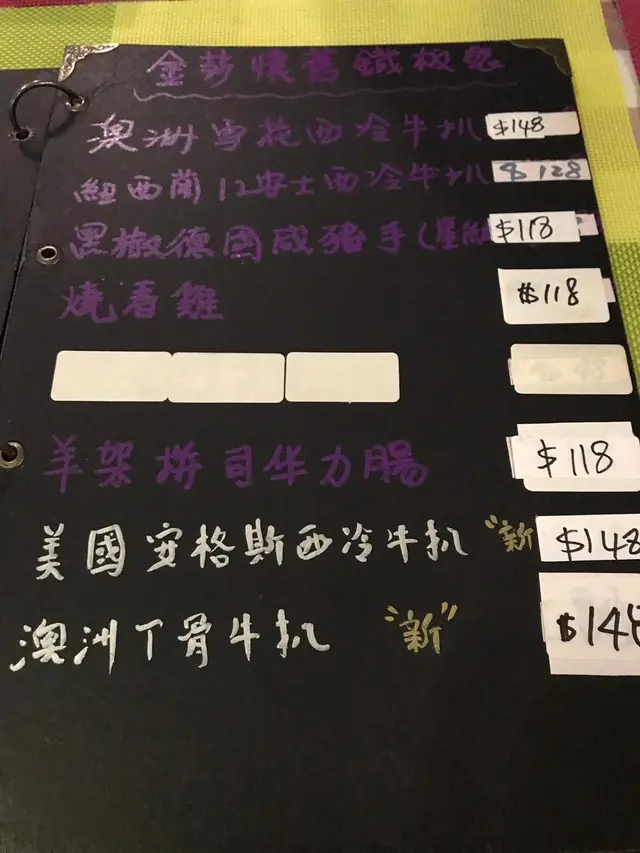 金莎懷舊鐵板餐
澳洲雪花西冷牛扒 $148
紐西蘭12安士西冷牛扒 $128
黑椒德國咸豬手( $118
燒春雞 $118
羊架拼司华力腸 $118
美國安格斯西冷牛扒 "新" $148
澳洲T骨牛扒 "新" $148